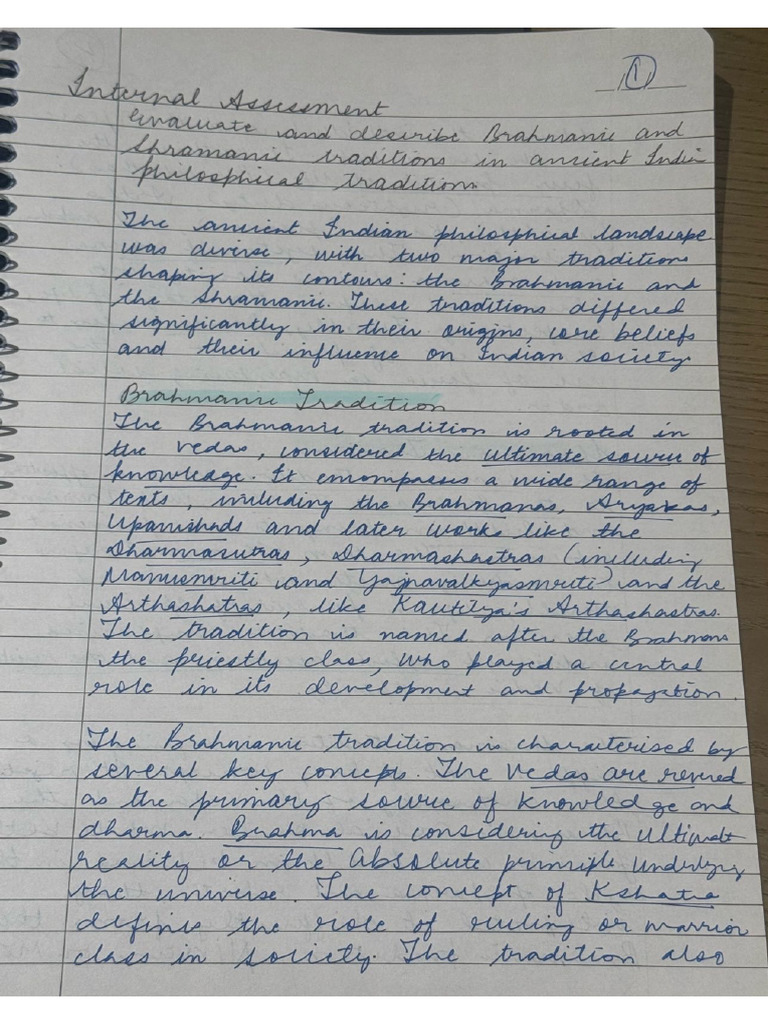 1
Internal Assessment
evaluate and describe Brahmanic and
Shramanic traditions in ancient India
philosphical traditions
The ancient Indian philosphical landscape
was diverse, with two major traditions
shaping its contours: the Brahmanic and
the Shramanic. These traditions differed
significantly in their origins, core beliefs
and their influence on Indian society.
Brahmanic Tradition
The Brahmanic tradition is rooted in
the vedas, considered the ultimate source of
knowledge. It emompasses a wide range of
texts, including the Brahmanas, Aryakas,
Upanishads and later works like the
Dharmasutras, Dharmashastras (including
Manusmriti and Yajnavalkyasmriti) and the
Arthashatras, like Kautilya's Arthashastras.
The tradition is named after the Brahmans
the priestly class, who played a central
role in its development and propagation.
The Brahmanic tradition is characterised by
several key concepts. The vedas are revered
as the primary source of knowledge and
dharma. Brahma is considering the ultimate
reality or the absolute principle underlying
the universe. The concept of Kshatra
defines the role of ruling or warrior
class in society. The tradition also